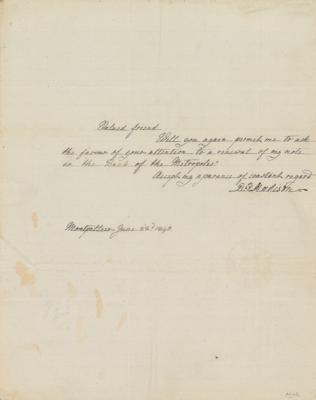 Valued friend
Will you again permit me to ask
the favour of your attention to a renewal of my note
in the Bank of the Metropolis.
Accept my assurance of constant regard
Montpellier June 22d